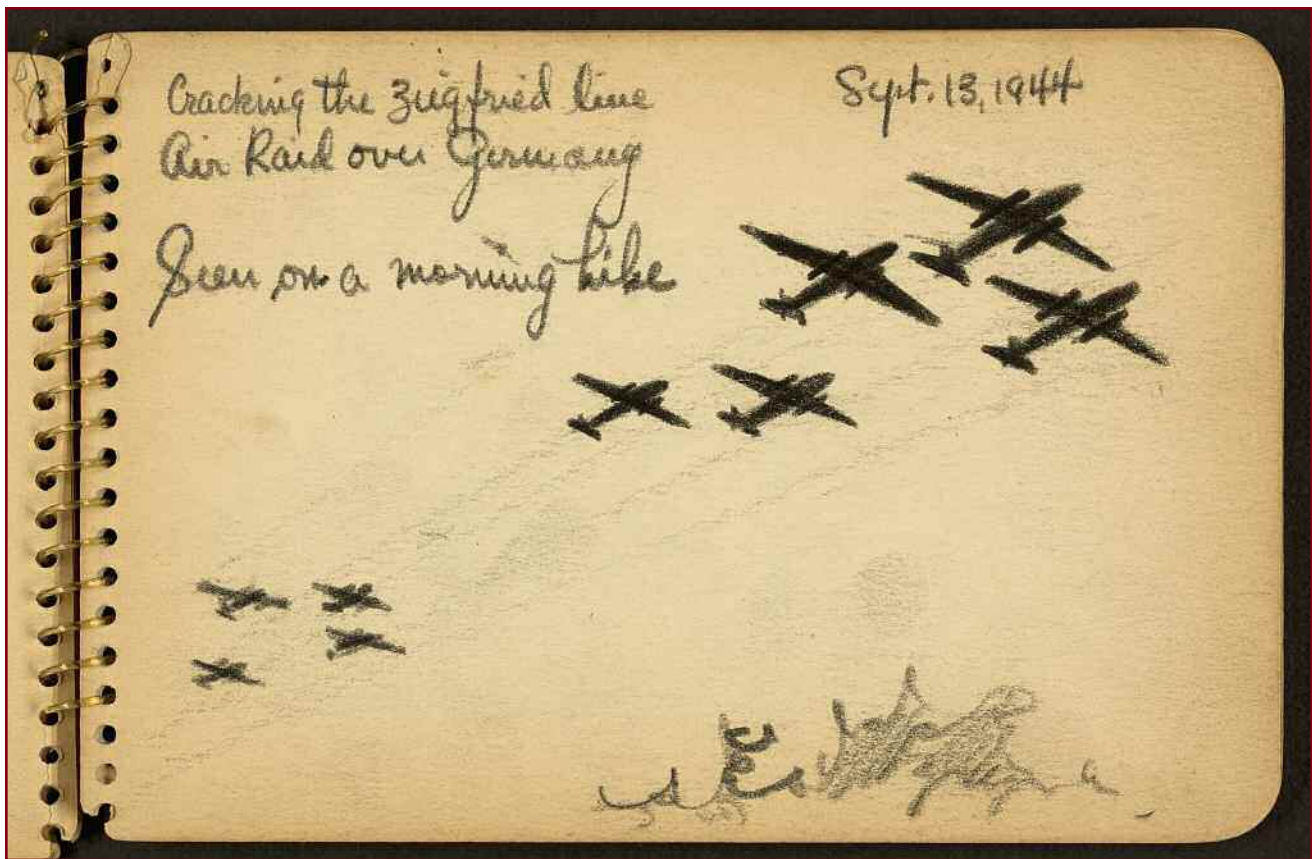 Cracking the Ziegfried line
Air Raid over Germany
Seen on a morning hike
Sept. 13, 1944